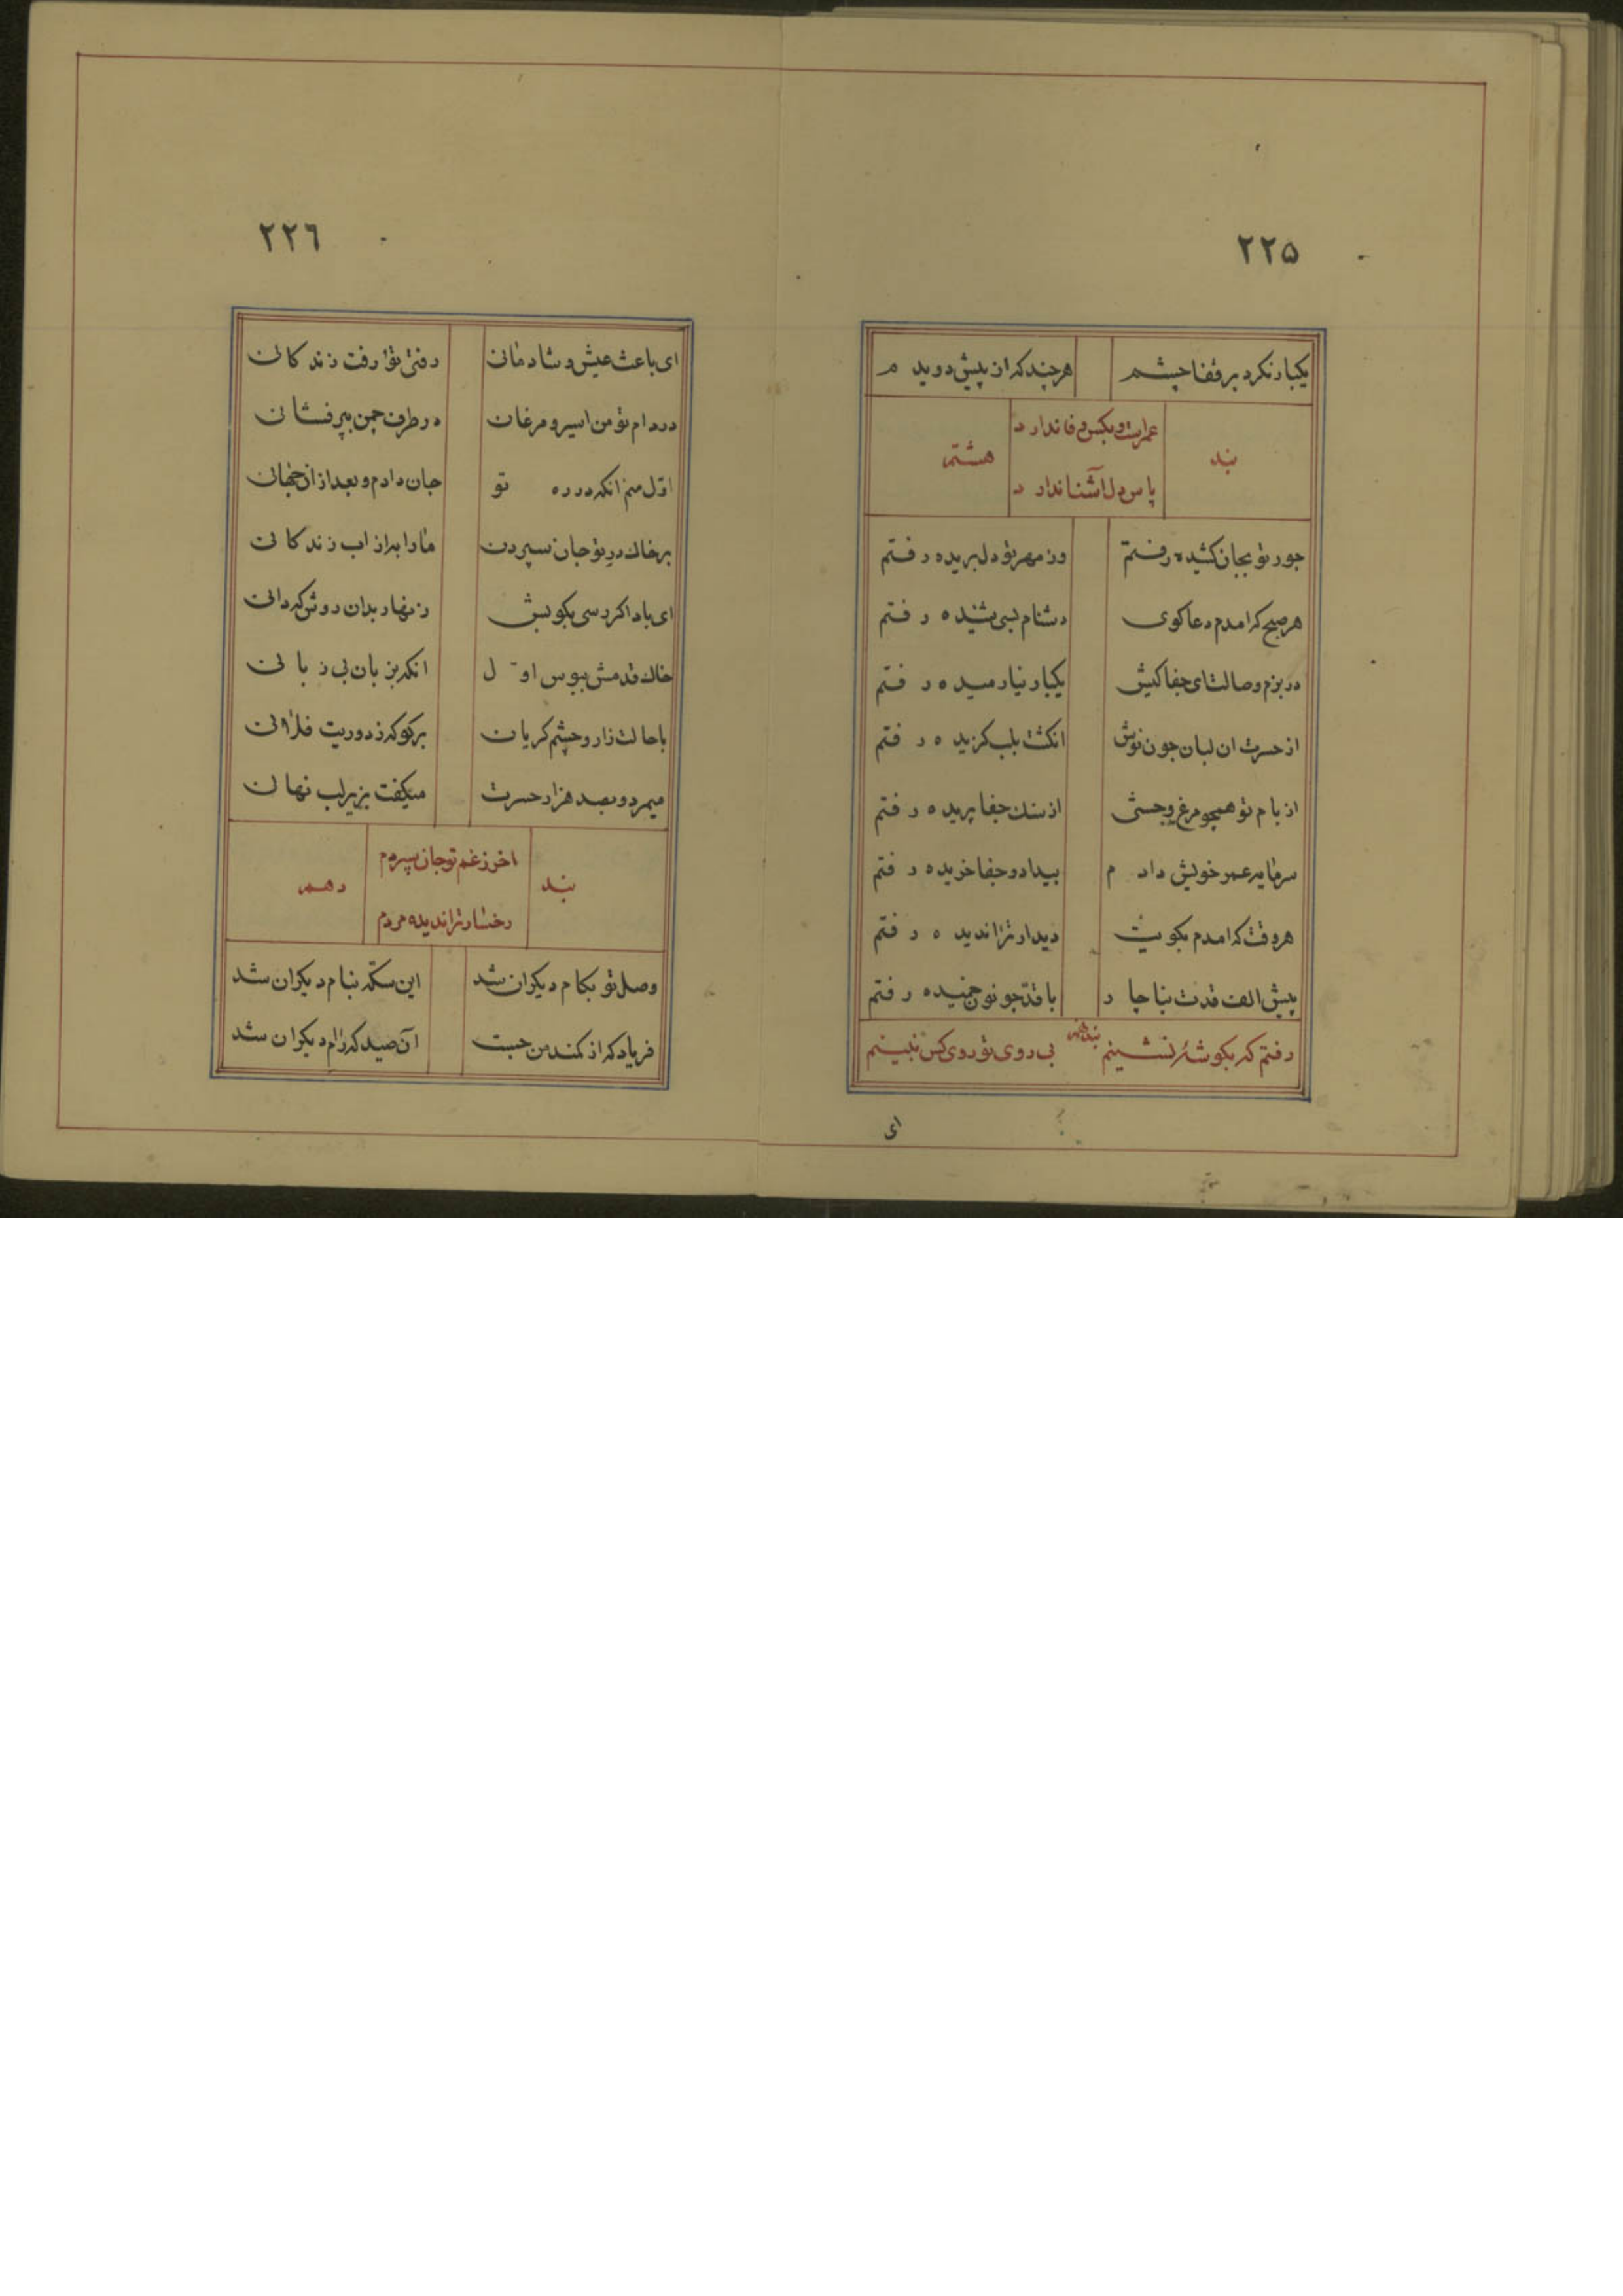 ٢٢۵
یکبار نکرد بر قفا چشم هر چند که از پیش دویدم
بند
عمر است و بکس وفا ندارد
پاس دل آشنا ندارد
هشتم
جور تو بجان کشیده رفتم وز مهر تو دل بریده رفتم
هر صبح که امدم دعا کوی دشنام بسی شنیده رفتم
در بزم وصالت ای جفا کیش یکبار نیارمیده رفتم
از حسرت ان لبان چون نوش انکشت بلب کزیده رفتم
از بام تو همچو مرغ وحشی از سنك جفا پریده رفتم
سرمایه عمر خویش دادم بیداد و جفا خریده رفتم
هر وقت که امدم بکویت دیدار ترا ندیده رفتم
پیش الف قدت بناچار با قد چو نون خمیده رفتم
رفتم که بکوشهٔ نشینم بند نهم بی روی تو روی کس نبینم
ای
٢٢٦
ای باعث عیش و شادمانی رفتی تو و رفت زندکانی
در دام تو من اسیر و مرغان در طرف چمن بپر فشانی
اوّل منم انکه در ره تو جان دادم و بعد از ان جهانی
بر خاك در تو جان سپردن ما را به از اب زندکانی
ای باد اکر رسی بکویش زنهار بدان روش که دانی
خاك قدمش ببوس اوّل انکه بزبان بی زبانی
با حالت زار و چشم کریان بر کو که ز دوریت فلانی
میمرد و بصد هزار حسرت میکفت بزیر لب نهانی
بند
اخر ز غم تو جان سپردم
رخسار ترا ندیده مردم
دهم
وصل تو بکام دیکران شد این سکّه بنام دیکران شد
فریاد که از کمند من جست آن صید که رام دیکران شد